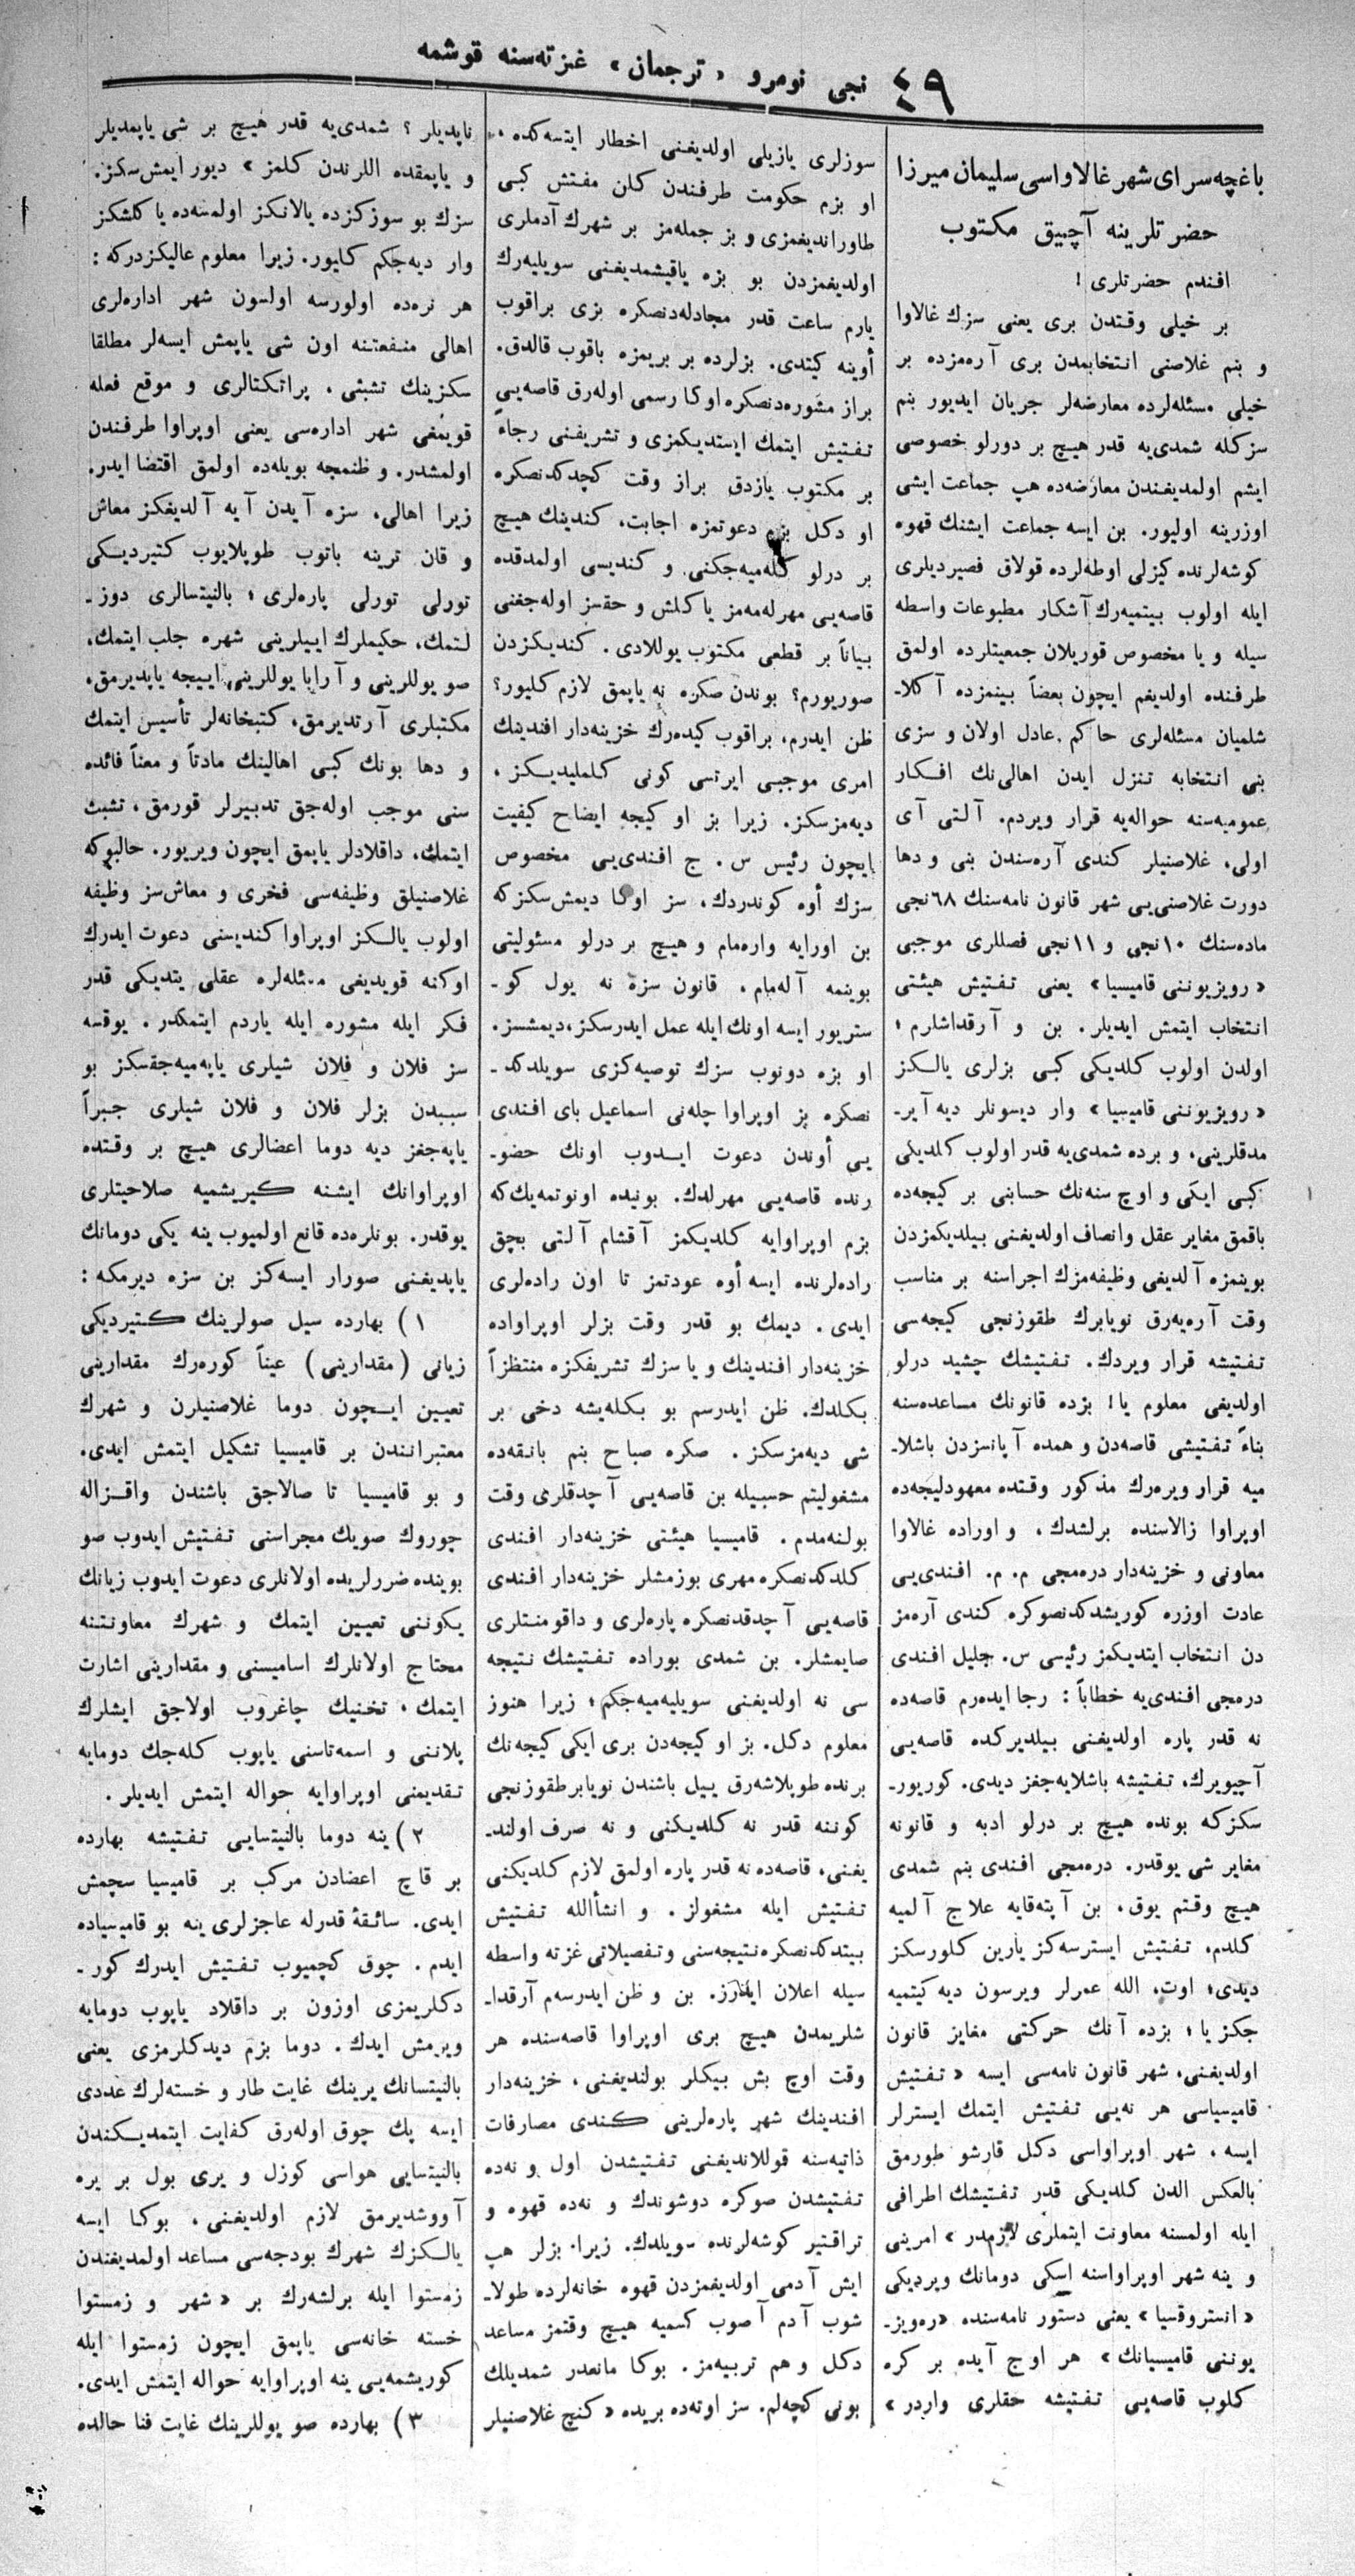 ٤٩ نجی نومرو «ترجمان» غزتەسنه قوشمه
باغچه‌سرای شهر غالاواسی سلیمان میرزا
حضرتلرینه آچیق مکتوب
افندم حضرتلری !
بر خیلی وقتدن بری یعنی سزك غالاوا
و بنم غلاصنی انتخابمدن بری آره‌مزده بر
خیلی مسئله‌لرده معارضه‌لر جریان ایدیور بنم
سزکله شمدی‌یه قدر هیچ بر دورلو خصوصی
ایشم اولمدیغندن معارضه‌ده هپ جماعت ایشی
اوزرینه اولیور. بن ایسه جماعت ایشنك قهوه
کوشه‌لرنده کیزلی اوطه‌لرده قولاق فصیردیلری
ایله اولوب بیتمیه‌رك آشکار مطبوعات واسطه
سیله و یا مخصوص قوریلان جمعیتلرده اولمق
طرفنده اولدیغم ایچون بعضاً بینمزده آکلا‌ـ
شلمیان مسئله‌لری حاکم عادل اولان و سزی
بنی انتخابه تنزل ایدن اهالی‌نك افکار
عمومیه‌سنه حواله‌یه قرار ویردم. آلتی آی
اولی، غلاصنیلر کندی آره‌سندن بنی و دها
دورت غلاصنی‌یی شهر قانون نامه‌سنك ٦٨نجی
ماده‌سنك ١٠نجی و ١١نجی فصللری موجبی
«رویزیوننی قامیسیا» یعنی تفتیش هیئتی
انتخاب ایتمش ایدیلر. بن و آرقداشلرم ؛
اولدن اولوب کلدیکی کبی بزلری یالکز
«رویزیوننی قامیسیا» وار دیسونلر دیه آیرـ
مدقلرینی، و برده شمدی‌یه قدر اولوب کلدیکی
کبی ایکی و اوچ سنه‌نك حسابنی بر کیجه‌ده
باقمق مغایر عقل وانصاف اولدیغنی بیلدیکمزدن
بوینمزه آلدیغی وظیفه‌مزك اجراسنه بر مناسب
وقت آره‌یه‌رق نویابرك طقوزنجی کیجه‌سی
تفتیشه قرار ویردك. تفتیشك چشید درلو
اولدیغی معلوم یا! بزده قانونك مساعده‌سنه
بناءً تفتیشی قاصه‌دن و همده آپانسزدن باشلاـ
میه قرار ویره‌رك مذکور وقتده معهودلیجه‌ده
اوپراوا زالاسنده برلشدك، و اوراده غالاوا
معاونی و خزینه‌دار دره‌مجی م. م. افندی‌یی
عادت اوزره کوریشدکدنصوکره کندی آره‌مز
دن انتخاب ایتدیکمز رئیسی س. جلیل افندی
دره‌مجی افندی‌یه خطاباً : رجا ایده‌رم قاصه‌ده
نه قدر پاره اولدیغنی بیلدیرکده قاصه‌یی
آچیویرك، تفتیشه باشلایه‌جغز دیدی. کوریورـ
سکزکه بونده هیچ بر درلو ادبه و قانونه
مغایر شی یوقدر. دره‌مجی افندی بنم شمدی
هیچ وقتم یوق، بن آپته‌قایه علاج آلمیه
کلدم، تفتیش ایسترسه‌کز یارین کلورسکز
دیدی؛ اوت، الله عمرلر ویرسون دیه کیتمیه
جکز یا ؛ بزده آنك حرکتی مغایر قانون
اولدیغنی، شهر قانون نامه‌سی ایسه «تفتیش
قامیسیاسی هر نه‌یی تفتیش ایتمك ایسترلر
ایسه، شهر اوپراواسی دکل قارشو طورمق
بالعکس الدن کلدیکی قدر تفتیشك اطرافی
ایله اولمسنه معاونت ایتملری لازمدر» امرینی
و ینه شهر اوپراواسنه اسکی دومانك ویردیکی
«انستروقسیا» یعنی دستور نامه‌سنده «ره‌ویزـ
یوننی قامیسیانك» هر اوچ آیده بر کره
کلوب قاصه‌یی تفتیشه حقلری واردر»
سوزلری یازیلی اولدیغنی اخطار ایتسه‌کده،
او بزم حکومت طرفندن کلن مفتش کبی
طاوراندیغمزی و بز جمله‌مز بر شهرك آدملری
اولدیغمزدن بو بزه یاقیشمدیغنی سویلیه‌رك
یارم ساعت قدر مجادله‌دنصکره بزی براقوب
أوینه کیتدی. بزلرده بر بریمزه باقوب قالدق.
براز مشوره‌دنصکره اوکا رسمی اوله‌رق قاصه‌یی
تفتیش ایتمك ایستدیکمزی و تشریفنی رجاءً
بر مکتوب یازدق. براز وقت کچدکدنصکره
او دکل بزم دعوتمزه اجابت، کندینك هیچ
بر درلو کله‌میه‌جکنی و کندیسی اولمدقده
قاصه‌یی مهرله‌مه‌مز یاکلش و حقسز اوله‌جغنی
بیاناً بر قطعی مکتوب یوللادی. کندیکزدن
صوریورم؟ بوندن صکره نه یاپمق لازم کلیور؟
ظن ایدرم، براقوب کیده‌رك خزینه‌دار افندینك
امری موجبی ایرتسی کونی کلملیدیکز،
دیه‌مزسکز. زیرا بز او کیجه ایضاح کیفیت
ایچون رئیس س. ج افندی‌یی مخصوص
سزك أوه کوندردك، سز اوکا دیمش‌سکزکه
بن اورایه واره‌مام و هیچ بر درلو مسئولیتی
بوینمه آله‌مام، قانون سزه نه یول کوـ
ستریور ایسه اونك ایله عمل ایدرسکز،دیمشسز.
او بزه دونوب سزك توصیه‌کزی سویلدکدـ
نصکره بز اوپراوا چله‌نی اسماعیل بای افندی
یی أوندن دعوت ایدوب اونك حضوـ
رنده قاصه‌یی مهرلدك. بونیده اونوتمه‌یك‌که
بزم اوپراوایه کلدیکمز آقشام آلتی بچق
راده‌لرنده ایسه أوه عودتمز تا اون راده‌لری
ایدی. دیمك بو قدر وقت بزلر اوپراواده
خزینه‌دار افندینك و یا سزك تشریفکزه منتظراً
بکلدك. ظن ایدرسم بو بکله‌یشه دخی بر
شی دیه‌مزسکز. صکره صباح بنم بانقه‌ده
مشغولیتم حسبیله بن قاصه‌یی آچدقلری وقت
بولنه‌مدم. قامیسیا هیئتی خزینه‌دار افندی
کلدکدنصکره مهری بوزمشلر خزینه‌دار افندی
قاصه‌یی آچدقدنصکره پاره‌لری و داقومنتلری
صایمشلر. بن شمدی بوراده تفتیشك نتیجه
سی نه اولدیغنی سویلیه‌میه‌جکم؛ زیرا هنوز
معلوم دکل. بز او کیجه‌دن بری ایکی کیجه‌نك
برنده طوپلاشه‌رق ییل باشندن نویابر طقوزنجی
کوننه قدر نه کلدیکنی و نه صرف اولندـ
یغنی، قاصه‌ده نه قدر پاره اولمق لازم کلدیکنی
تفتیش ایله مشغولز. و انشأالله تفتیش
بیتدکدنصکره نتیجه‌سنی وتفصیلاتی غزته واسطه
سیله اعلان ایدرز. بن و ظن ایدرسه‌م آرقداـ
شلریمدن هیچ بری اوپراوا قاصه‌سنده هر
وقت اوچ بش بیکلر بولندیغنی، خزینه‌دار
افندینك شهر پاره‌لرینی کندی مصارفات
ذاتیه‌سنه قوللاندیغنی تفتیشدن اول و نه‌ده
تفتیشدن صوکره دوشوندك و نه‌ده قهوه و
تراقتیر کوشه‌لرنده سویلدك. زیرا بزلر هپ
ایش آدمی اولدیغمزدن قهوه خانه‌لرده طولاـ
شوب آدم آصوب کسمیه هیچ وقتمز مساعد
دکل و هم تربیه‌مز. بوکا مانعدر شمدیلك
بونی کچه‌لم. سز اوته‌ده بریده «کنج غلاصنیلر
ناپدیلر ؟ شمدی‌یه قدر هیچ بر شی یاپمدیلر
و یاپمقده اللرندن کلمز» دیور ایمش‌سکز.
سزك بو سوزکزده یالانکز اولمسه‌ده یاکلشکز
وار دیه‌جکم کلیور. زیرا معلوم عالیکزدرکه :
هر نره‌ده اولورسه اولسون شهر اداره‌لری
اهالی منفعتنه اون شی یاپمش ایسه‌لر مطلقا
سکزینك تشبثی، پراتکتالری و موقع فعله
قویمغی شهر اداره‌سی یعنی اوپراوا طرفندن
اولمشدر. و ظنمجه بویله‌ده اولمق اقتضا ایدر.
زیرا اهالی، سزه آیدن آیه آلدیغکز معاش
و قان ترینه باتوب طوپلایوب کتیردیکی
تورلی تورلی پاره‌لری ؛ بالنیتسالری دوزـ
لتمك، حکیملرك اییلرینی شهره جلب ایتمك،
صو یوللرینی و آرابا یوللرینی اییجه یاپدیرمق،
مکتبلری آرتدیرمق، کتبخانه‌لر تأسیس ایتمك
و دها بونك کبی اهالینك مادتاً و معناً فائده
سنی موجب اوله‌جق تدبیرلر قورمق، تشبث
ایتمك، داقلادلر یاپمق ایچون ویریور. حالبوکه
غلاصنیلق وظیفه‌سی فخری و معاش‌سز وظیفه
اولوب یالکز اوپراوا کندیسنی دعوت ایدرك
اوکنه قویدیغی مسئله‌لره عقلی یتدیکی قدر
فکر ایله مشوره ایله یاردم ایتمکدر. یوقسه
سز فلان و فلان شیلری یاپه‌میه‌جقسکز بو
سببدن بزلر فلان و فلان شیلری جبراً
یاپه‌جغز دیه دوما اعضالری هیچ بر وقتده
اوپراوانك ایشنه کیریشمیه صلاحیتلری
یوقدر. بونلره‌ده قانع اولمیوب ینه یکی دومانك
یاپدیغنی صورار ایسه‌کز بن سزه دیرمکه :
١) بهارده سیل صولرینك کتیردیکی
زیانی (مقدارینی) عیناً کوره‌رك مقدارینی
تعیین ایچون دوما غلاصنیلرن و شهرك
معتبرانندن بر قامیسیا تشکیل ایتمش ایدی.
و بو قامیسیا تا صالاجق باشندن واقزاله
چوروك صویك مجراسنی تفتیش ایدوب صو
بوینده ضررلریده اولانلری دعوت ایدوب زیانك
یکوننی تعیین ایتمك و شهرك معاونتنه
محتاج اولانلرك اسامیسنی و مقدارینی اشارت
ایتمك، تخنیك چاغروب اولاجق ایشلرك
پلاننی و اسمه‌تاسنی یاپوب کله‌جك دومایه
تقدیمنی اوپراوایه حواله ایتمش ایدیلر.
٢) ینه دوما بالنیتسایی تفتیشه بهارده
بر قاچ اعضادن مرکب بر قامیسیا سچمش
ایدی. سائقهٔ قدرله عاجزلری ینه بو قامیسیاده
ایدم. چوق کچمیوب تفتیش ایدرك کورـ
دکلریمزی اوزون بر داقلاد یاپوب دومایه
ویرمش ایدك. دوما بزم دیدکلرمزی یعنی
بالنیتسانك یرینك غایت طار و خسته‌لرك عددی
ایسه پك چوق اوله‌رق کفایت ایتمدیکندن
بالنیتسایی هواسی کوزل و یری بول بر یره
آووشدیرمق لازم اولدیغنی، بوکا ایسه
یالکزك شهرك بودجه‌سی مساعد اولمدیغندن
زمستوا ایله برلشه‌رك بر «شهر و زمستوا
خسته خانه‌سی یاپمق ایچون زمستوا ایله
کوریشمه‌یی ینه اوپراوایه حواله ایتمش ایدی.
٣) بهارده صو یوللرینك غایت فنا حالده